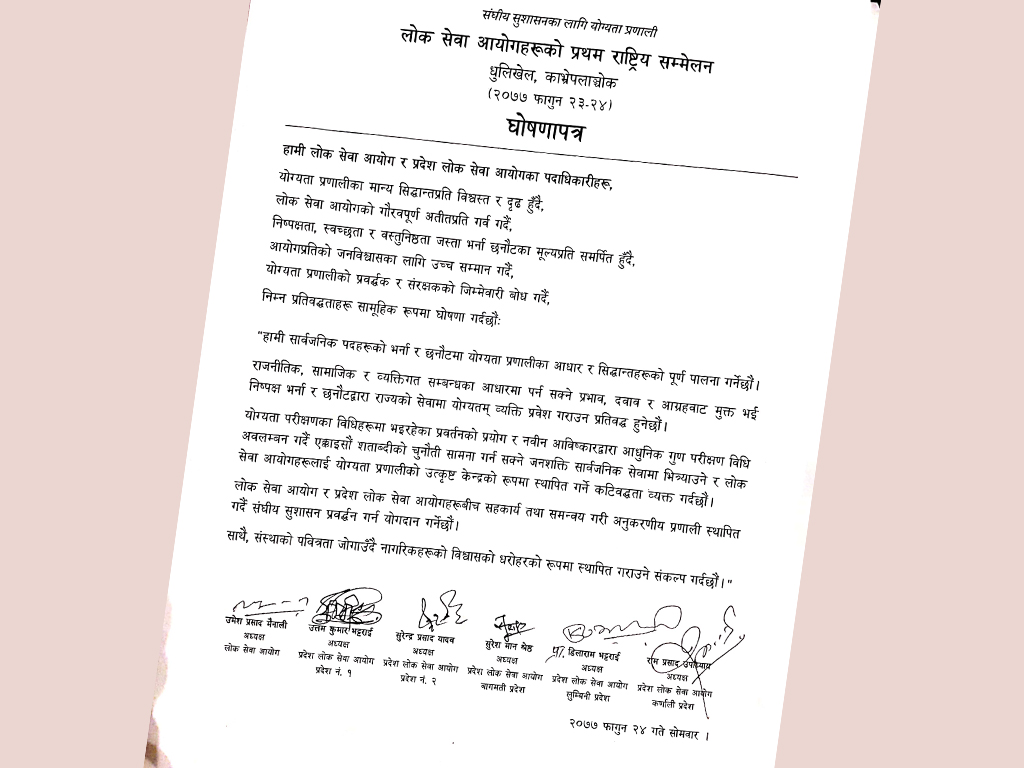 संघीय सुशासनका लागि योग्यता प्रणाली
लोक सेवा आयोगहरूको प्रथम राष्ट्रिय सम्मेलन
धुलिखेल, काभ्रेपलाञ्चोक
(२०७७ फागुन २३-२४)
घोषणापत्र
हामी लोक सेवा आयोग र प्रदेश लोक सेवा आयोगका पदाधिकारीहरू,
योग्यता प्रणालीका मान्य सिद्धान्तप्रति विश्वस्त र दृढ हुँदै,
लोक सेवा आयोगको गौरवपूर्ण अतीतप्रति गर्व गर्दै,
निष्पक्षता, स्वच्छता र वस्तुनिष्ठता जस्ता भर्ना छनौटका मूल्यप्रति समर्पित हुँदै,
आयोगप्रतिको जनविश्वासका लागि उच्च सम्मान गर्दै,
योग्यता प्रणालीको प्रवर्द्धक र संरक्षकको जिम्मेवारी बोध गर्दै,
निम्न प्रतिवद्धताहरू सामूहिक रूपमा घोषणा गर्दछौंः
"हामी सार्वजनिक पदहरूको भर्ना र छनौटमा योग्यता प्रणालीका आधार र सिद्धान्तहरूको पूर्ण पालना गर्नेछौं।
राजनीतिक, सामाजिक र व्यक्तिगत सम्बन्धका आधारमा पर्न सक्ने प्रभाव, दवाव र आग्रहवाट मुक्त भई
निष्पक्ष भर्ना र छनौटद्वारा राज्यको सेवामा योग्यतम् व्यक्ति प्रवेश गराउन प्रतिवद्ध हुनेछौं।
योग्यता परीक्षणका विधिहरूमा भइरहेका प्रवर्तनको प्रयोग र नवीन आविष्कारद्वारा आधुनिक गुण परीक्षण विधि
अवलम्बन गर्दै एक्काइसौं शताब्दीको चुनौती सामना गर्न सक्ने जनशक्ति सार्वजनिक सेवामा भित्र्याउने र लोक
सेवा आयोगहरूलाई योग्यता प्रणालीको उत्कृष्ट केन्द्रको रूपमा स्थापित गर्ने कटिवद्धता व्यक्त गर्दछौं।
लोक सेवा आयोग र प्रदेश लोक सेवा आयोगहरूबीच सहकार्य तथा समन्वय गरी अनुकरणीय प्रणाली स्थापित
गर्दै संघीय सुशासन प्रवर्द्धन गर्न योगदान गर्नेछौं।
साथै, संस्थाको पवित्रता जोगाउँदै नागरिकहरूको विश्वासको धरोहरको रूपमा स्थापित गराउने संकल्प गर्दछौं।"
उमेश प्रसाद मैनाली
अध्यक्ष
लोक सेवा आयोग
उत्तम कुमार भट्टराई
अध्यक्ष
प्रदेश लोक सेवा आयोग
प्रदेश नं. १
सुरेन्द्र प्रसाद यादव
अध्यक्ष
प्रदेश लोक सेवा आयोग
प्रदेश नं. २
सुरेश मान श्रेष्ठ
अध्यक्ष
प्रदेश लोक सेवा आयोग
बागमती प्रदेश
डिलाराम भट्टराई
अध्यक्ष
प्रदेश लोक सेवा आयोग
लुम्बिनी प्रदेश
राम प्रसाद उपाध्याय
अध्यक्ष
प्रदेश लोक सेवा आयोग
कर्णाली प्रदेश
२०७७ फागुन २४ गते सोमवार ।